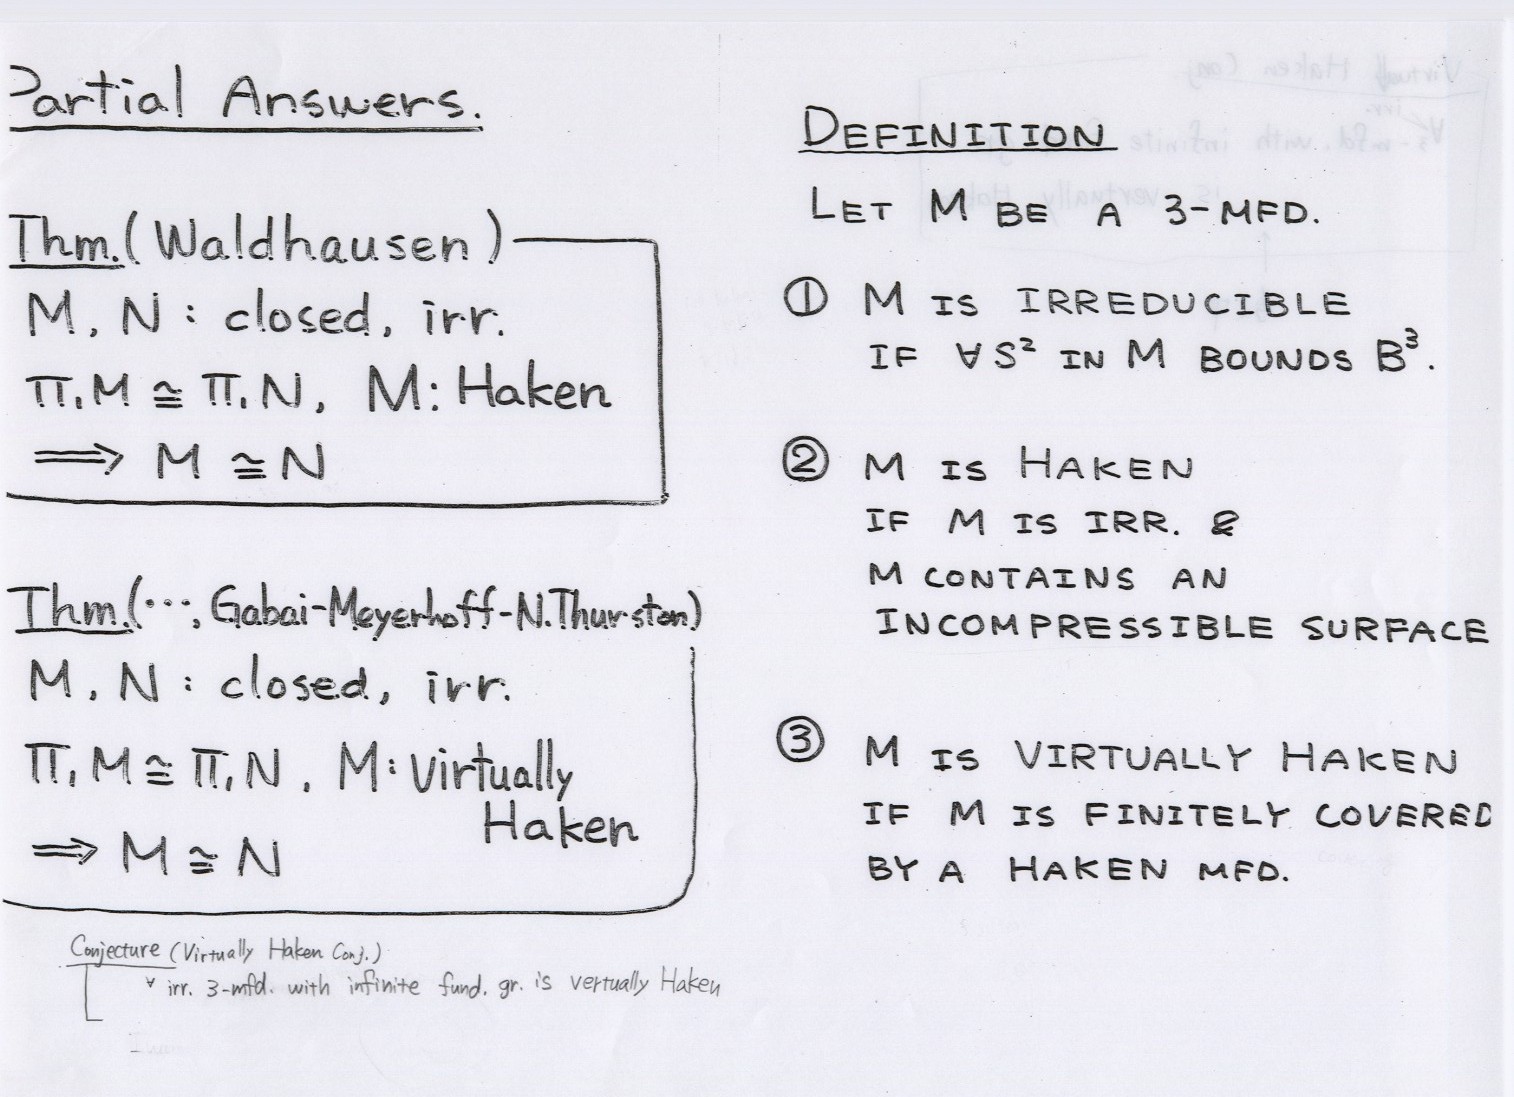 Partial Answers.
Thm.(Waldhausen)
M, N : closed, irr.
π₁M ≅ π₁N, M: Haken
⟹ M ≅ N
Thm.(⋯; Gabai-Meyerhoff-N.Thurston)
M, N : closed, irr.
π₁M ≅ π₁N, M: Virtually
Haken
⟹ M ≅ N
Conjecture (Virtually Haken Conj.)
∀ irr. 3-mfd. with infinite fund. gr. is vertually Haken
DEFINITION
LET M BE A 3-MFD.
① M IS IRREDUCIBLE
IF ∀S² IN M BOUNDS B³.
② M IS HAKEN
IF M IS IRR. &
M CONTAINS AN
INCOMPRESSIBLE SURFACE
③ M IS VIRTUALLY HAKEN
IF M IS FINITELY COVERED
BY A HAKEN MFD.